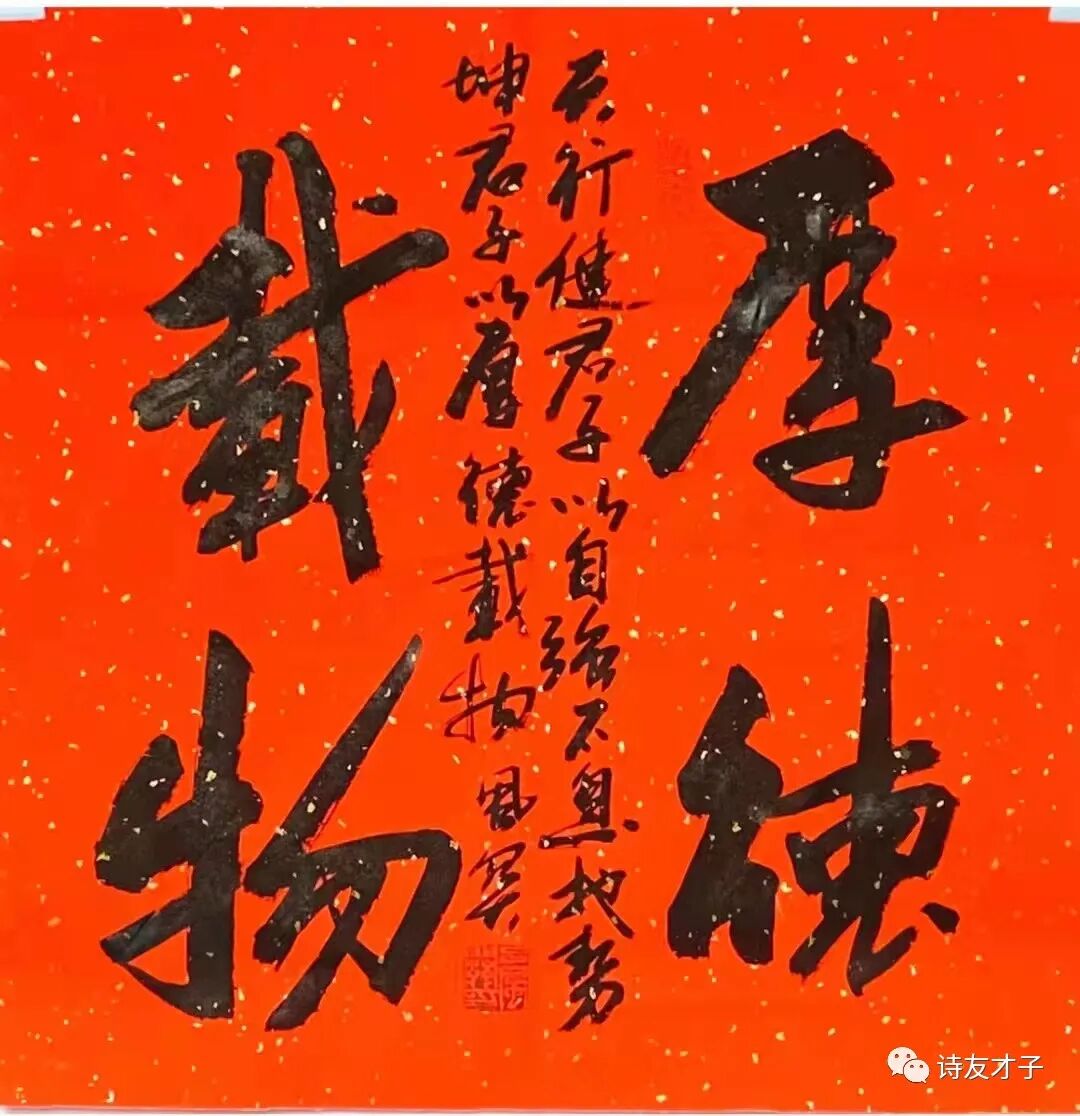 厚德
天行健君子以自强不息地势
坤君子以厚德载物
載物
诗友才子